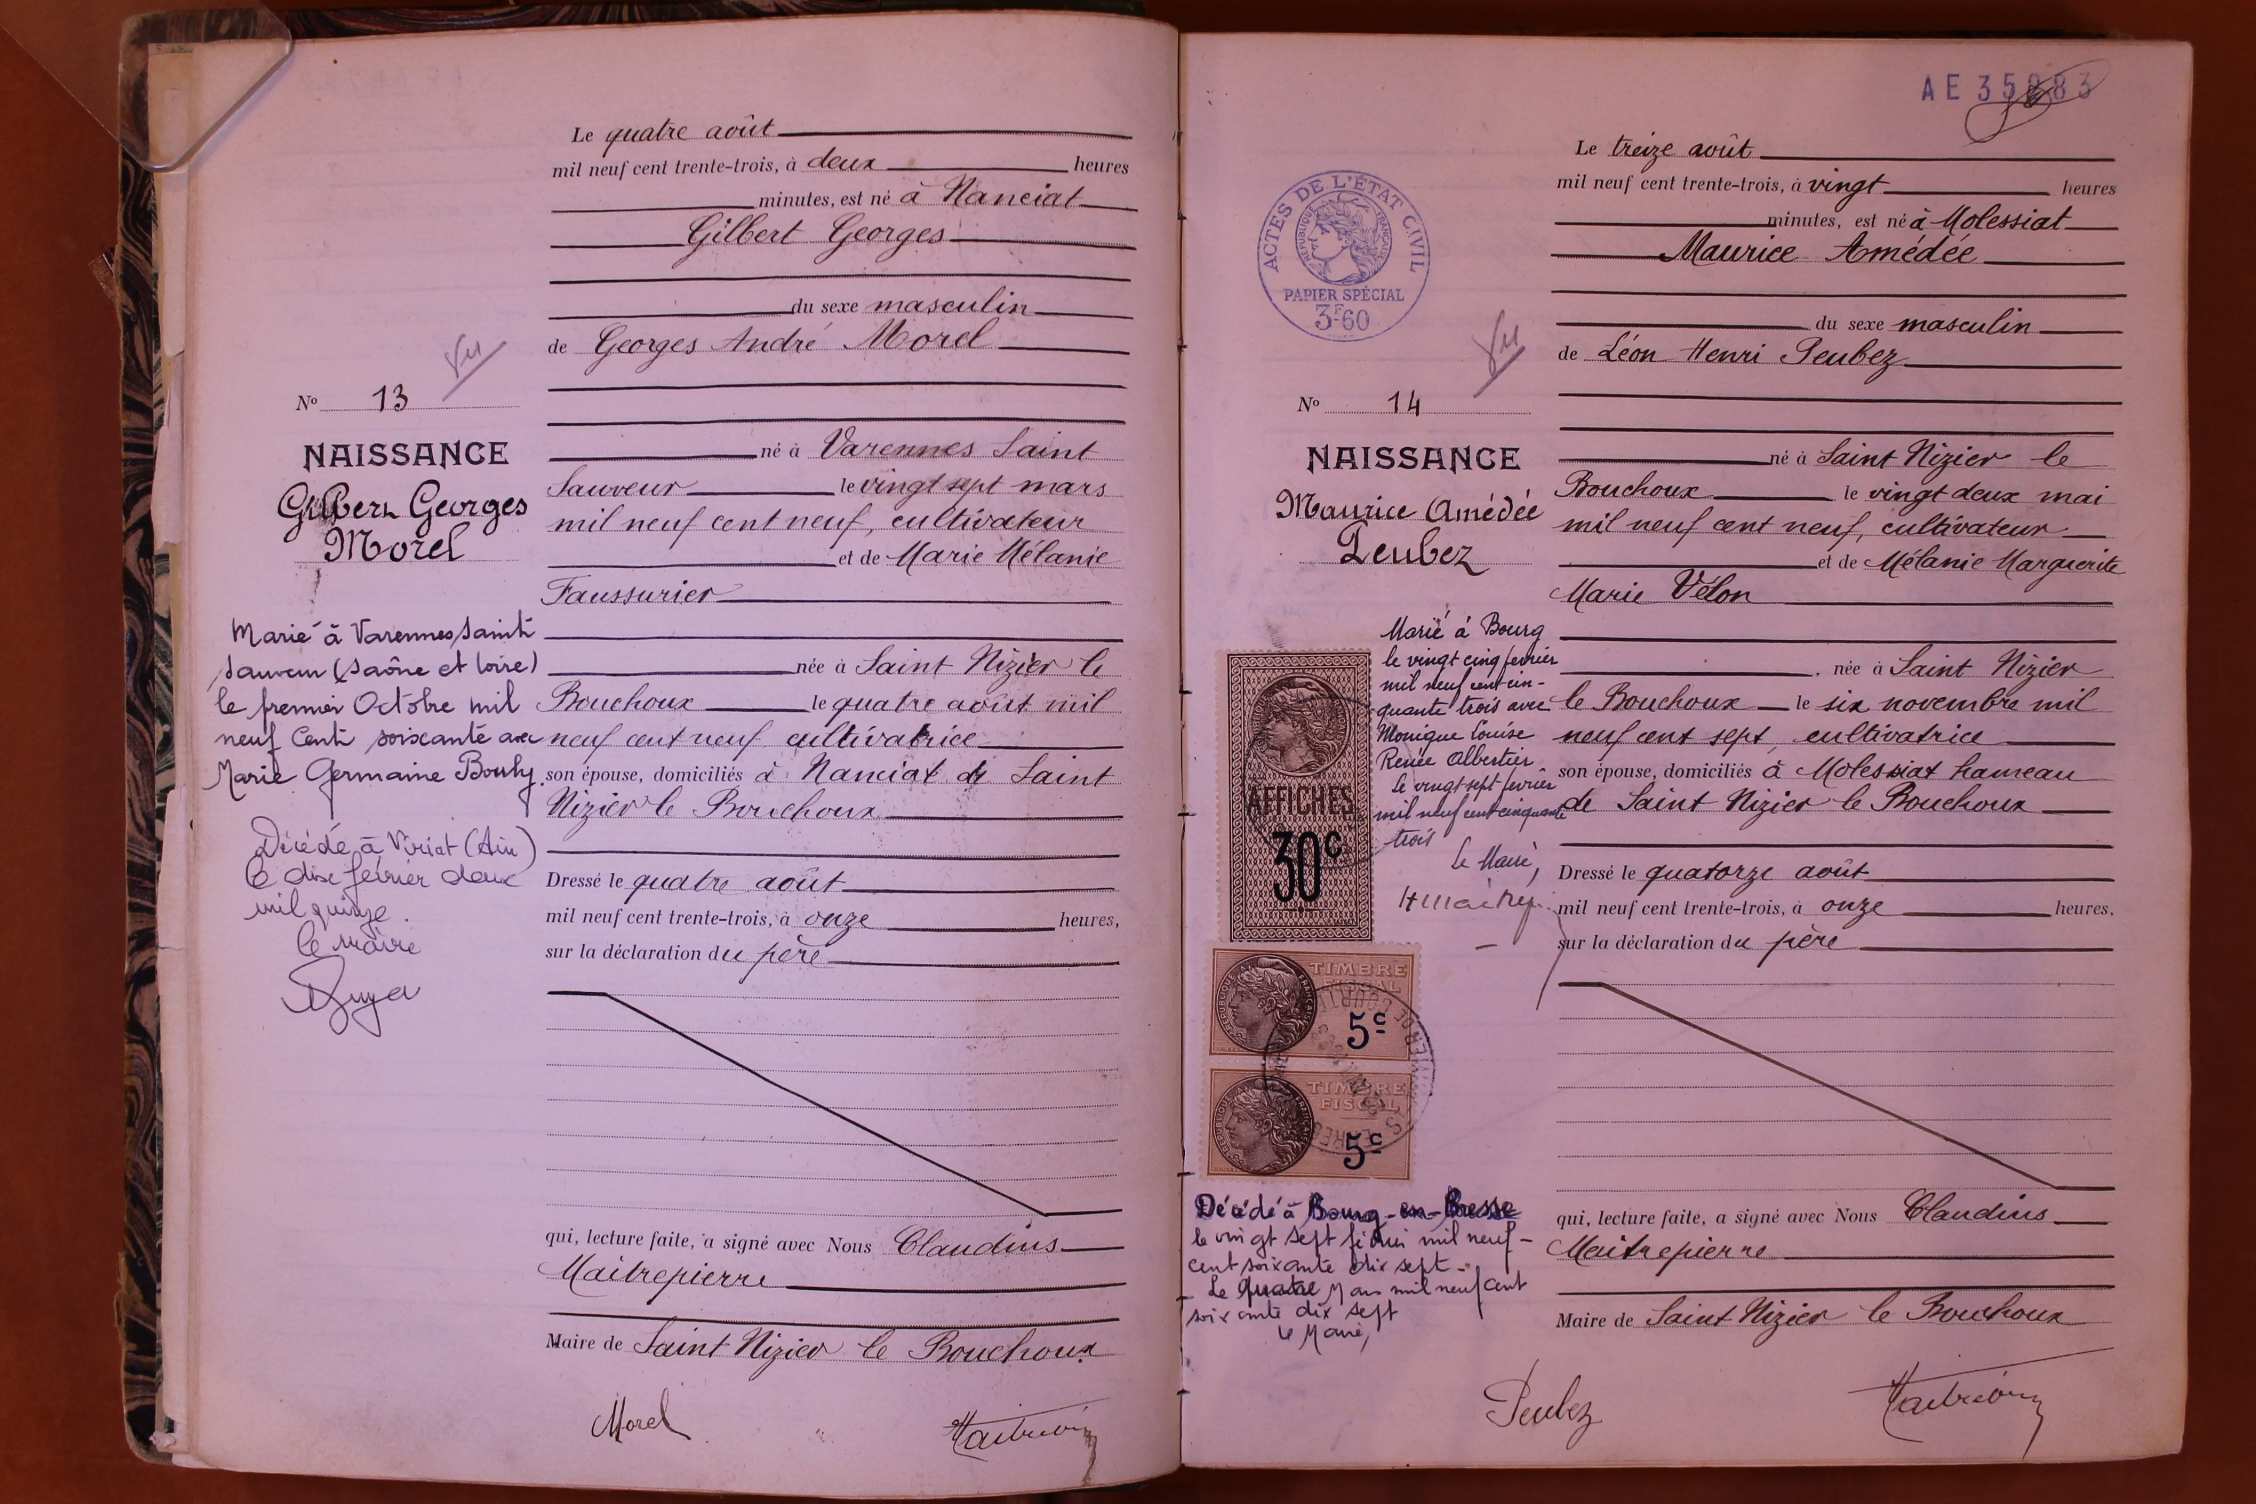 Le quatre août
mil neuf cent trente-trois, à deux heures
minutes, est né à Nanciat
Gilbert Georges
du sexe masculin
de Georges André Morel
né à Varennes Saint
Sauveur le vingt sept mars
mil neuf cent neuf, cultivateur
et de Marie Mélanie
Faussurier
née à Saint Nizier le
Bouchoux le quatre août mil
neuf cent neuf cultivatrice
son épouse, domiciliés à Nanciat de Saint
Nizier le Bouchoux
Dressé le quatre août
mil neuf cent trente-trois, à onze heures,
sur la déclaration du père
qui, lecture faite, a signé avec Nous Claudius
Maitrepierre
Maire de Saint Nizier le Bouchoux
Morel
Vu
No 13
NAISSANCE
Gilbert Georges
Morel
Marié à Varennes Saint
Sauveur (Saône et Loire)
le premier Octobre mil
neuf cent soixante avec
Marie Germaine Bouly.
Décédé à Viriat (Ain)
le dix février deux
mil quinze.
le maire
AE 35883
Le treize août
mil neuf cent trente-trois, à vingt heures
minutes, est né à Molessiat
Maurice Amédée
du sexe masculin
de Léon Henri Peubez
né à Saint Nizier le
Bouchoux le vingt deux mai
mil neuf cent neuf, cultivateur
et de Mélanie Marguerite
Marie Vélon
née à Saint Nizier
le Bouchoux le six novembre mil
neuf cent sept, cultivatrice
son épouse, domiciliés à Molessiat hameau
de Saint Nizier le Bouchoux
Dressé le quatorze août
mil neuf cent trente-trois, à onze heures.
sur la déclaration du père
qui, lecture faite, a signé avec Nous Claudius
Maitrepierre
Maire de Saint Nizier le Bouchoux
Peubez
ACTES DE L'ÉTAT CIVIL
RÉPUBLIQUE FRANÇAISE
PAPIER SPÉCIAL
3F60
Vu
No 14
NAISSANCE
Maurice Amédée
Peubez
Marié à Bourg
le vingt cinq février
mil neuf cent cin-
quante trois avec
Monique Louise
Renée Albertier
Le vingt sept février
mil neuf cent cinquante
trois
Le Maire,
AFFICHES
30c
TIMBRE
FISCAL
5c
TIMBRE
FISCAL
5c
Décédé à Bourg-en-Bresse
le vingt sept février mil neuf-
cent soixante dix sept-
Le quatre Mars mil neuf cent
soixante dix sept
Le Maire,